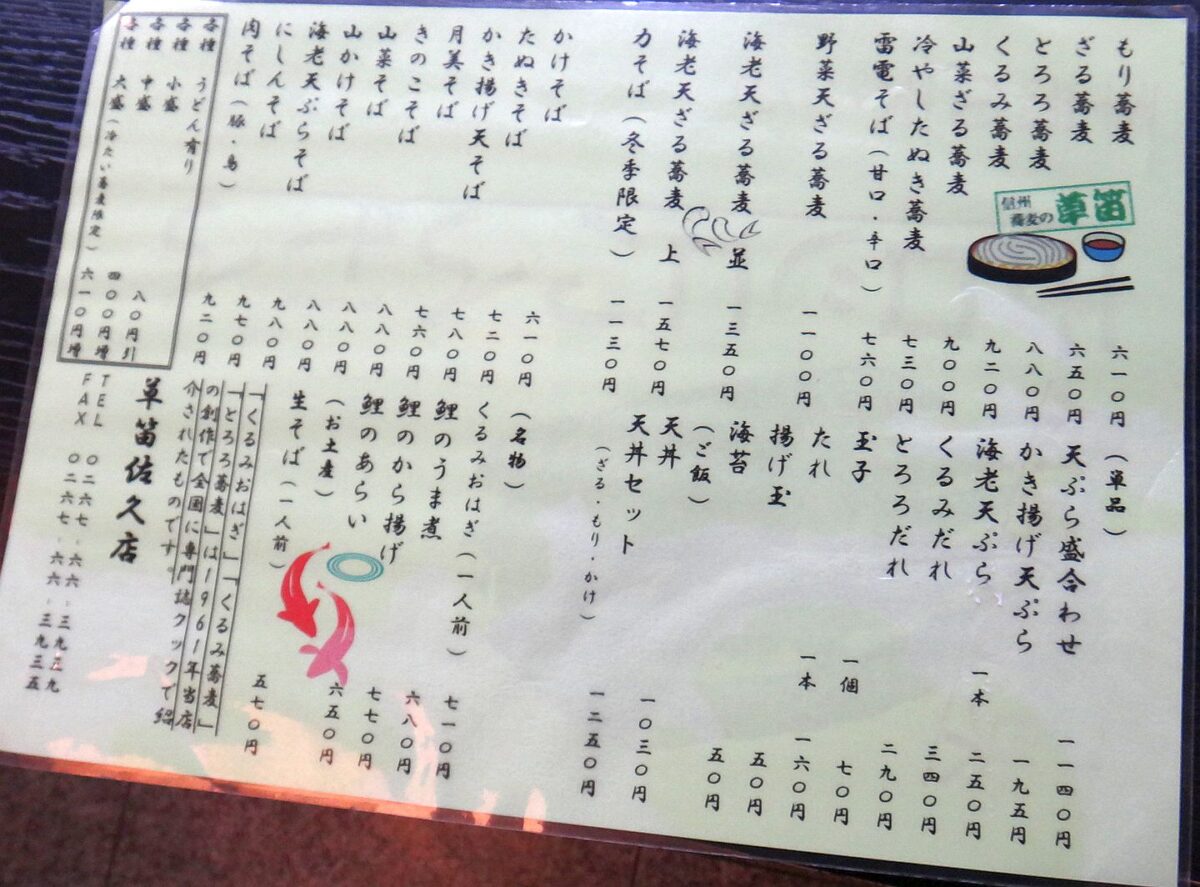 信州
蕎麦の
草笛
もり蕎麦 六一〇円
ざる蕎麦 六五〇円
とろろ蕎麦 八八〇円
くるみ蕎麦 九二〇円
山菜ざる蕎麦 九〇〇円
冷やしたぬき蕎麦 七三〇円
雷電そば(甘口・辛口) 七六〇円
野菜天ざる蕎麦 一一〇〇円
海老天ざる蕎麦 並 一三五〇円
海老天ざる蕎麦 上 一五七〇円
力そば(冬季限定) 一一三〇円
かけそば 六一〇円
たぬきそば 七二〇円
かき揚げ天そば 七八〇円
月美そば 七六〇円
きのこそば 八八〇円
山菜そば 八八〇円
山かけそば 八八〇円
海老天ぷらそば 九八〇円
にしんそば 九七〇円
肉そば(豚・鳥) 九二〇円
各種 うどん有り
各種 小盛 八〇円引
各種 中盛 四〇〇円増
各種 大盛(冷たい蕎麦限定) 六一〇円増
(単品)
天ぷら盛合わせ 一一四〇円
かき揚げ天ぷら 一九五円
海老天ぷら 一本 二五〇円
くるみだれ 三四〇円
とろろだれ 二九〇円
玉子 一個 七〇円
たれ 一本 一六〇円
揚げ玉 五〇円
海苔 五〇円
(ご飯)
天丼 一〇三〇円
天丼セット 一二五〇円
(ざる・もり・かけ)
(名物)
くるみおはぎ(一人前) 七一〇円
鯉のうま煮 六八〇円
鯉のから揚げ 七七〇円
鯉のあらい 六五〇円
(お土産)
生そば(一人前) 五七〇円
「くるみおはぎ」「くるみ蕎麦」
「とろろ蕎麦」は1961年当店
の創作で全国に専門誌クックで紹
介されたものです。
草笛佐久店
TEL 〇二六七・六六・三九二九
FAX 〇二六七・六六・三九三五